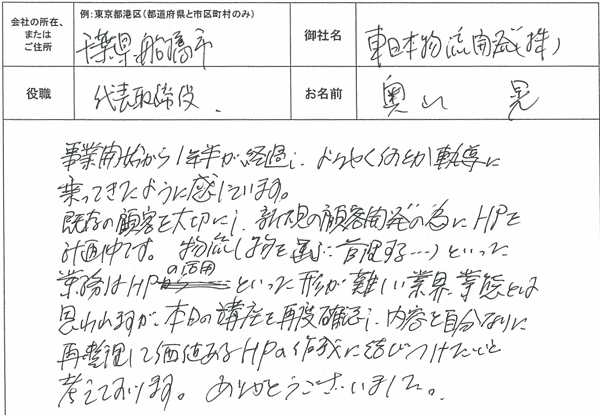 会社の所在、
または
ご住所
例:東京都港区(都道府県と市区町村のみ)
千葉県船橋市
御社名
東日本物流開発(株)
役職
代表取締役
お名前
奥山 晃
事業開始から1年半が経過し、ようやく何とか軌道に
乗ってきたように感じています。
既存の顧客を大切にし、新規の顧客開発の為にHPを
計画中です。物流(物を運ぶ、管理する…)といった
業務はHPの活用といった形が難しい業界、業態とは
思われますが、本日の講座を再度確認し、内容を自分なりに
再整理して価値あるHPの作成に結びつけたいと
考えております。ありがとうございました。